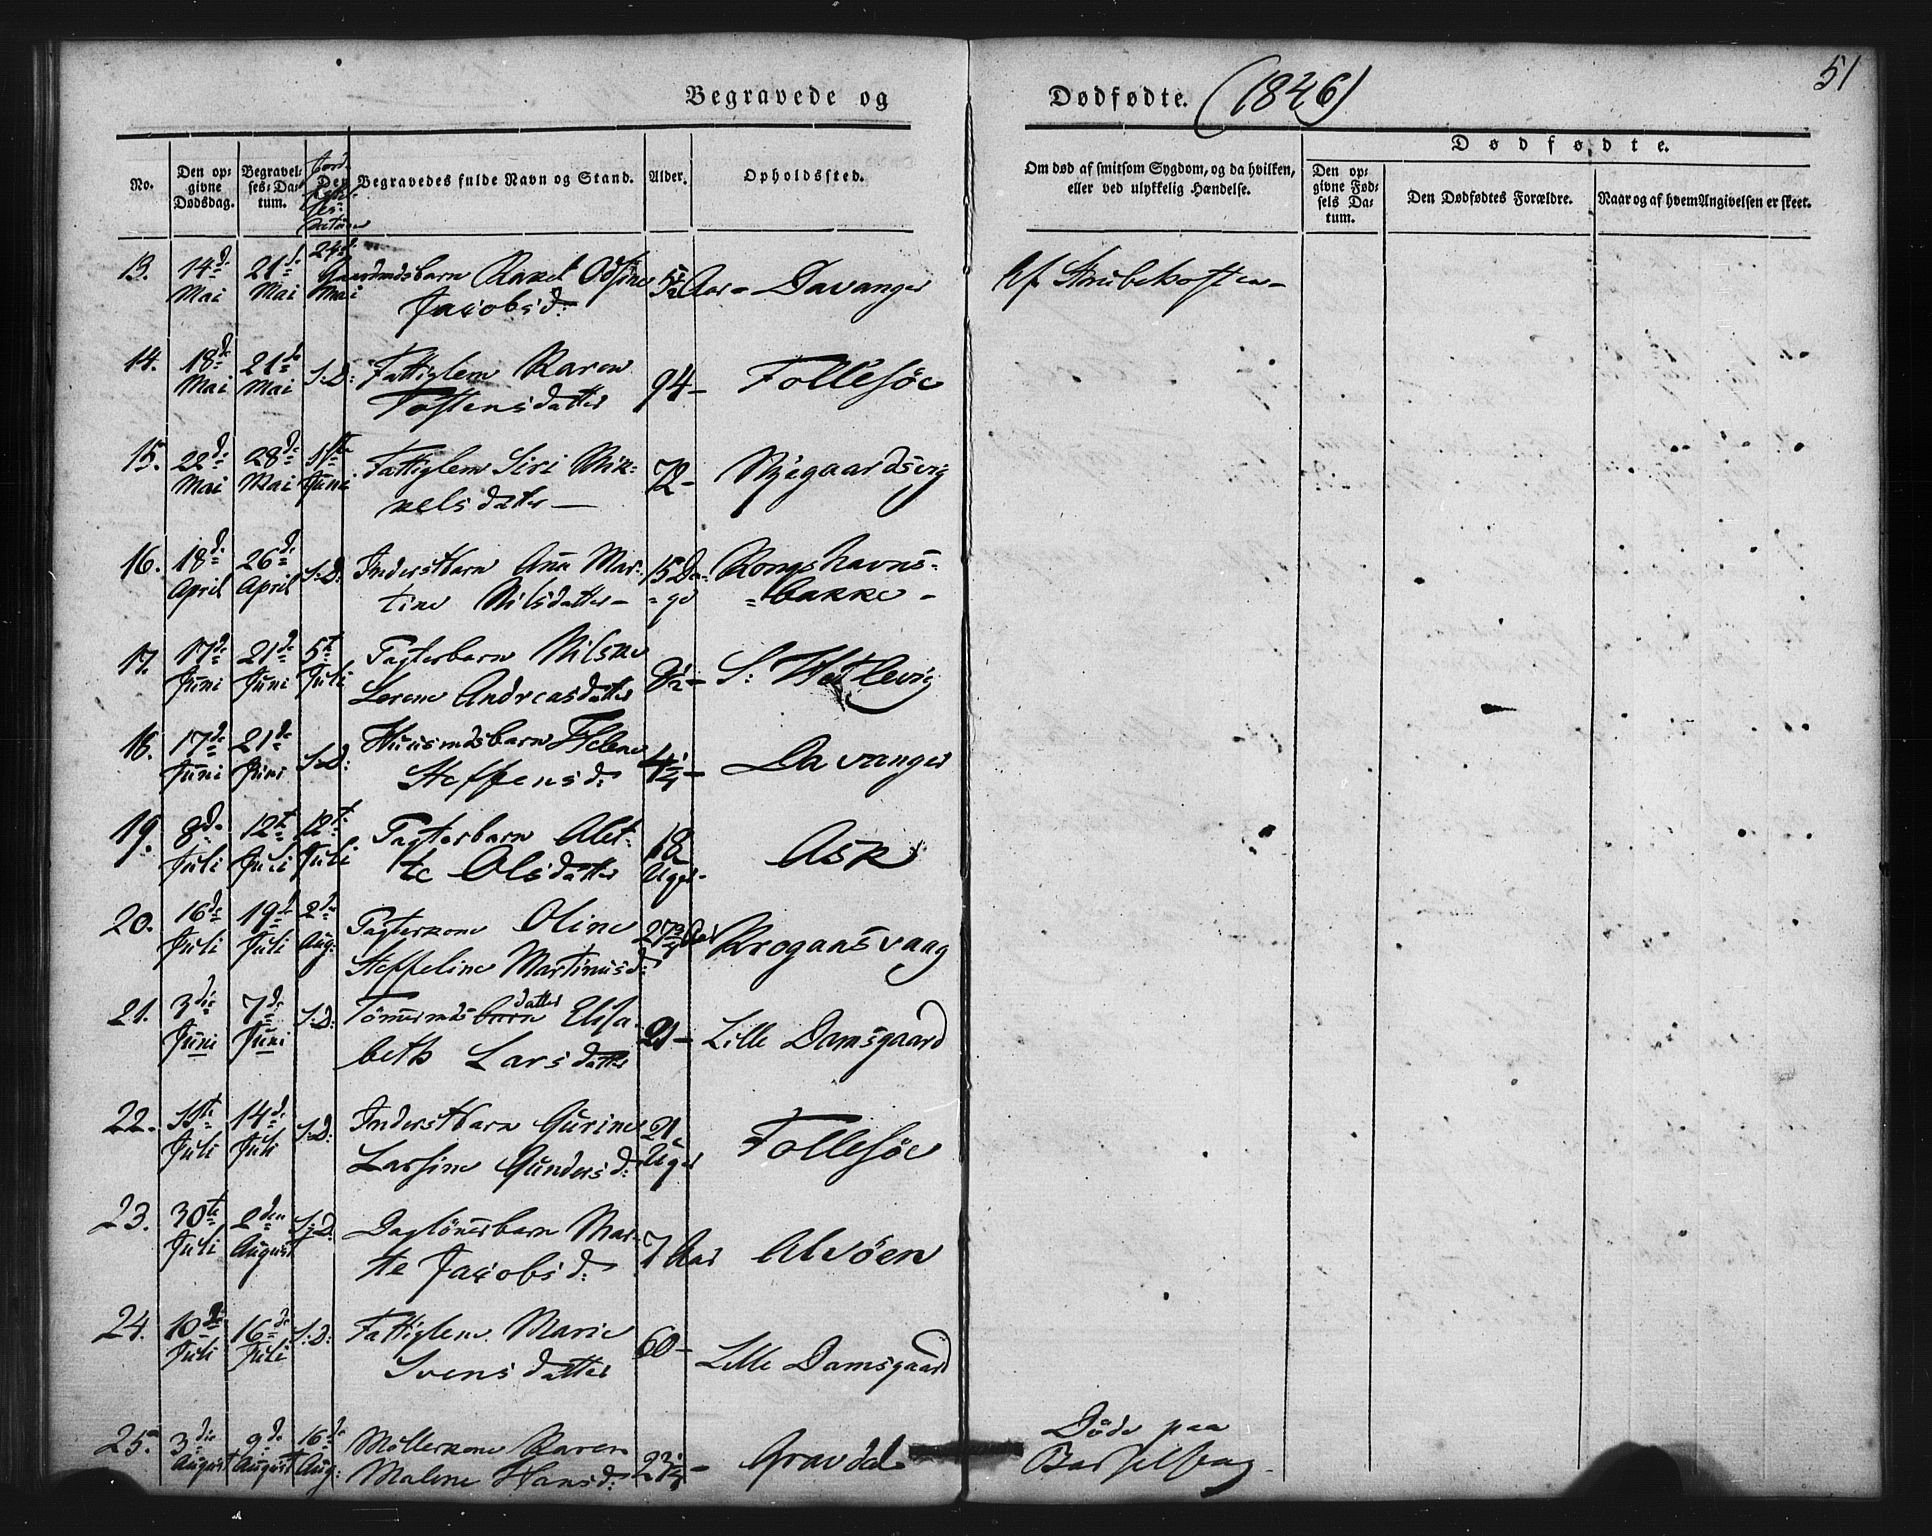 Begravede og
Dødfødte. (1846)
51
No.
Den op-
givne
Dødsdag.
Begravel-
ses-Da-
tum.
Begravedes fulde Navn og Stand.
Alder.
Opholdssted.
Om død af smitsom Sygdom, og da hvilken,
eller ved ulykkelig Hændelse.
Dødfødte.
Den op-
givne Fød-
sels Da-
tum.
Den Dødfødtes Forældre.
Naar og af hvem Angivelsen er skeet.
13. 14d Mai 21d Mai 24d Mai Gaardmdsbarn Rakel Odsine
Jacobsd: Aar - Davanger af Strubehosten -
14. 18de Mai 21de Mai S:D: Fattiglem Karen
Tostensdatter 94 - Follesøe
15. 22de Mai 28de Mai Juni Fattiglem Siri Mik-
kelsdatter - 72 - Myegaardsvig
16. 18de April 26de April S:D: Inderstbarn Ana Mar-
tine Nilsdatter - 15 Da-
ge Kongshavns-
bakke -
17. 17de Juni 21de Juni 5te Juli Pagterbarn Nilsine
Lerene Andreasdatter 1/2 - S: Hetlevig
18. 17de Juni 21de Juni S:D: Huusmdsbarn Helene
Steffensd: 4 1/4 - Davanger
19. 8de Juli 12te Juli 12te Juli Pagterbarn Alet-
te Olsdatter 18
Uger - Ask
20. 16de Juli 19de Juli 2de Aug: Pagterkone Oline
Steffeline Martinusd: 27 3/4 Aar Krogaasvaag
21. 3die Juni 7de Juni S:D: Tømermds datter Elisa-
beth Larsdatter 21 - Lille Damsgaard
22. 11te Juli 14de Juli S:D: Inderstbarn Gurine
Larsine Gundersd: 21
Uger Follesøe
23. 30te Juli 2den August S:D: Daglønerbarn Mar-
the Jacobsd: 7 Aar Alvøen
24. 10de Juli 16de Juli S:D: Fattiglem Marie
Svensdatter 60 - Lille Damsgaard
25. 3die August 9de August 16de Aug: Møllerkone Karen
Malene Hansd: 22 1/4 - Gravdal Døde paa
Barselseng -